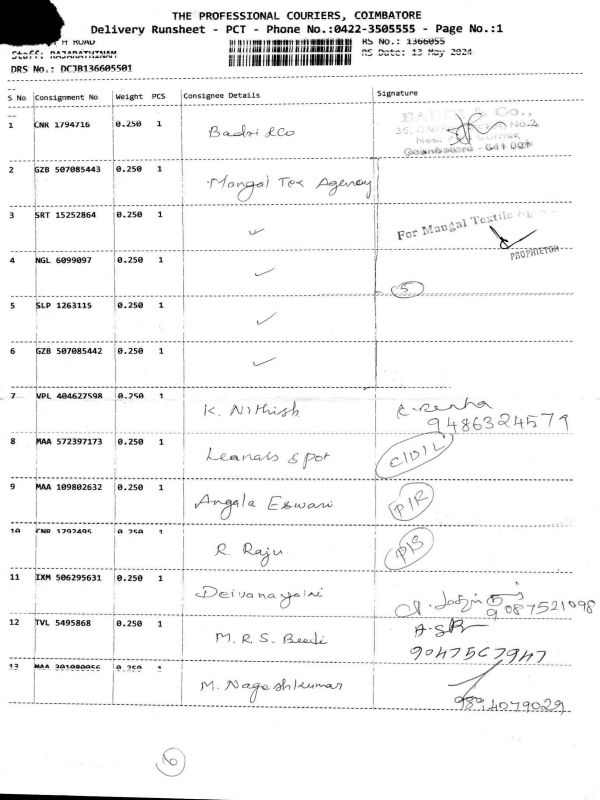 THE PROFESSIONAL COURIERS, COIMBATORE
Delivery Runsheet - PCT - Phone No.:0422-3505555 - Page No.:1
H ROAD
RS No.: 1366055
Staff: RAJARATHINAM
RS Date: 13 May 2024
DRS No.: DCJB136605501
S No Consignment No Weight PCS Consignee Details Signature
1 CNR 1794716 0.250 1 Badri &Co
& Co.,
Coimbatore - 641 001
2 GZB 507085443 0.250 1 Mangal Tex Agency
3 SRT 15252864 0.250 1 ✓ For Mangal Textile
PROPRIETOR
4 NGL 6099097 0.250 1 ✓
5
5 SLP 1263115 0.250 1 ✓
6 GZB 507085442 0.250 1 ✓
7 VPL 404627598 0.250 1 K. Nithish
9486324579
8 MAA 572397173 0.250 1 spot C/D/L
9 MAA 109802632 0.250 1 Angala Eswari P/R
10 CNR 1792495 0.250 1 R. Raju P/S
11 IXM 506295631 0.250 1 Deivanayaki
9087521098
12 TVL 5495868 0.250 1 M.R.S. Beedi
9047567947
13 MAA 301080056 0.250 1 M. Nageshkumar
9894079029
6